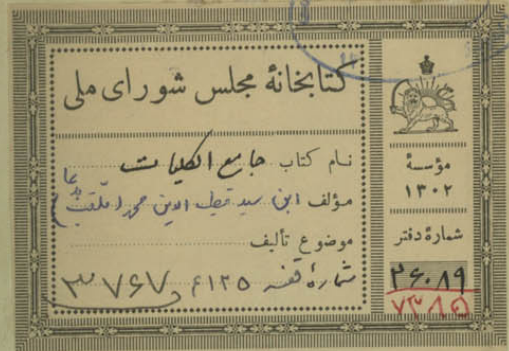 کتابخانهٔ مجلس شورای ملی
نام کتاب جامع الکلیات
مؤلف ابن سید قطب الدین محمد الملقب
موضوع تألیف
شمارهٔ قفسه ۶۱۳۵ ۳۷۶۷
مؤسسهٔ
۱۳۰۲
شمارهٔ دفتر
۲۶۰۸۹
۷۳۸۵